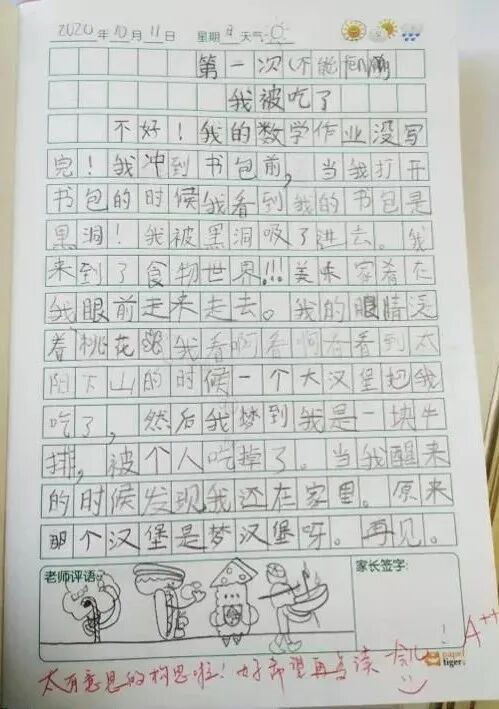 2020年10月11日 星期日 天气
第一次(不能
我被吃了
不好！我的数学作业没写
完！我冲到书包前，当我打开
书包的时候我看到我的书包是
黑洞！我被黑洞吸了进去。我
来到了食物世界!!!美味家肴在
我眼前走来走去。我的眼睛泛
着桃花 我看啊看啊看看到太
阳下山的时候一个大汉堡把我
吃了，然后我梦到我是一块牛
排，被个人吃掉了。当我醒来
的时候发现我还在家里。原来
那个汉堡是梦汉堡呀。再见。
老师评语： 家长签字：
太有意思的构思啦！好希望再多读 A++
paper tiger